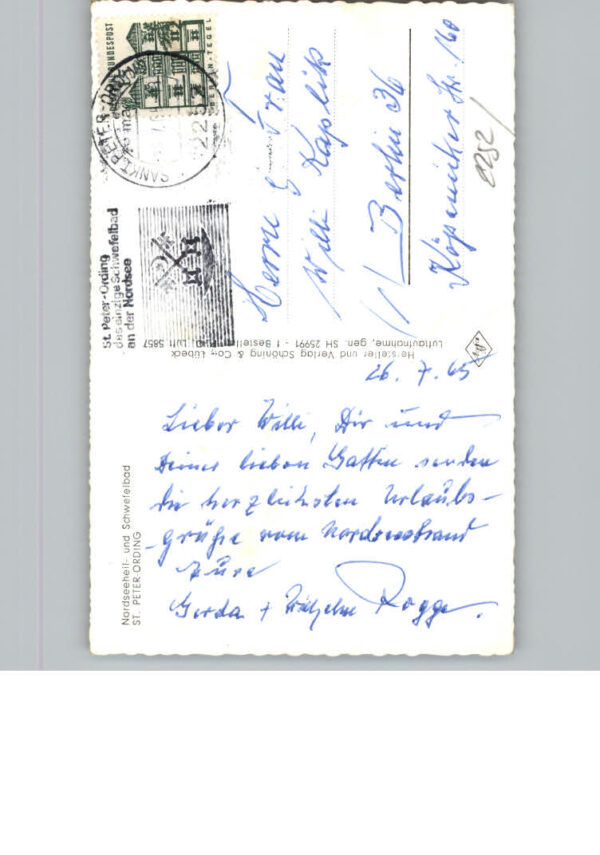 Nordseeheil- und Schwefelbad
ST. PETER-ORDING
26. 7. 65
Lieber Willi, Dir und
Deiner lieben Gattin senden
die herzlichsten Urlaubs-
grüße vom Nordseestrand
Eure
Gerda + Wilhelm Rogge.
Hersteller und Verlag Schöning & Co., Lübeck
Luftaufnahme, gen. SH 25991 - 1 Bestell Luft 5857
St. Peter-Ording
das einzige Schwefelbad
an der Nordsee
SANKT PETER-ORDING
2252
BUNDESPOST
BERLIN-TEGEL
Herrn & Frau
Willi Kaplik
1/ Berlin 36
Köpenicker Str. 160
2252/